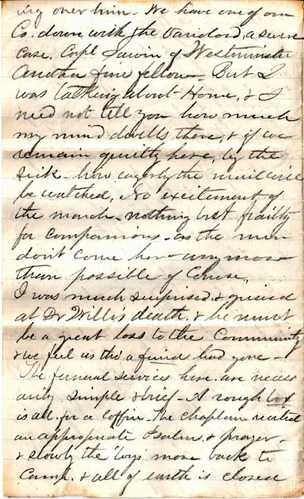 ing over him. We have one of our
Co. down with the Varioloid, a severe
case. Corpl Irwin of Westminster
Another fine fellow - But I
was talking about Home, & I
need not tell you how much
my mind dwells there, & if we
remain quietly here, by the
sick - how eagerly the mail will
be watched, No excitement of
the march - nothing but
for companions - as the men
don't come here any more
than possible of Course,
I was much surprised & grieved
at Dr Willis death, & he must
be a great loss to the Community
& we feel as tho a friend had gone -
The funeral services here are necess
arily simple & brief - A rough box
is all for a Coffin. The chaplain recited
an appropriate Psalm, & prayer -
& slowly the boys move back to
Camp, & all of earth is closed